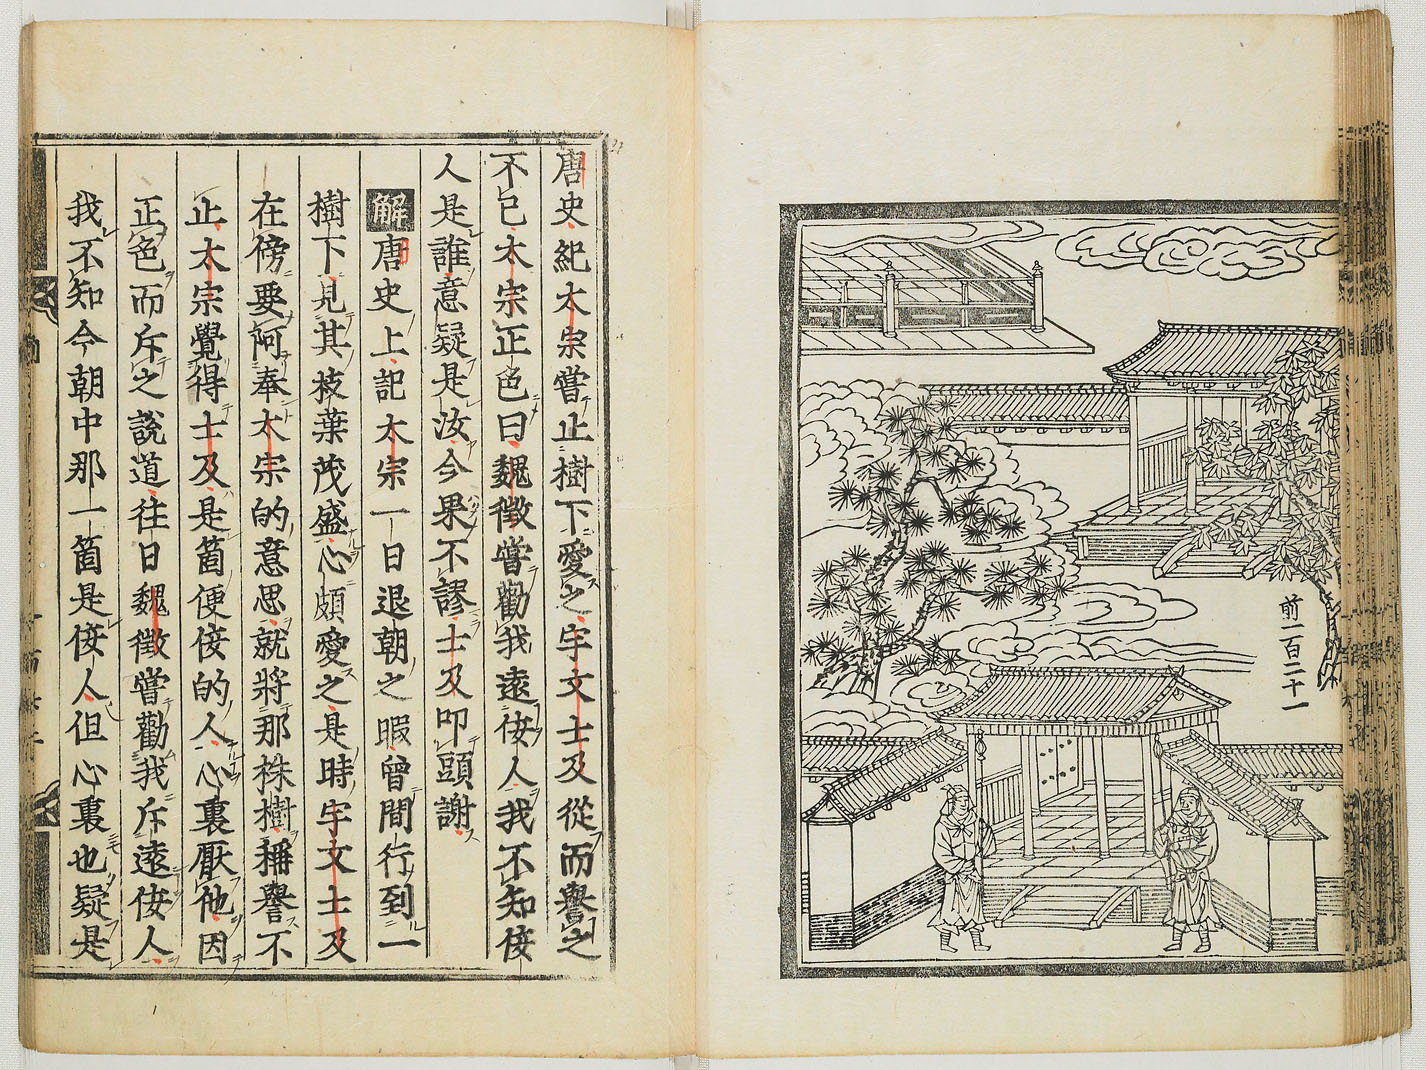 前一百二十一
唐史紀太宗嘗止樹下愛之宇文士及從而譽之
不已太宗正色曰魏徵嘗勸我遠佞人我不知佞
人是誰意疑是汝今果不謬士及叩頭謝
解唐史上記太宗一日退朝之暇曾間行到一
樹下見其枝葉茂盛心頗愛之是時宇文士及
在傍要阿奉太宗的意思就將那株樹稱譽不
止太宗覺得士及是箇便佞的人心裏厭他因
正色而斥之說道往日魏徵嘗勸我斥遠佞人
我不知今朝中那一箇是佞人但心裏也疑是